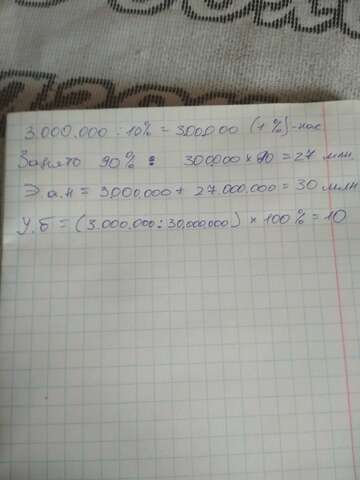 3.000.000 : 10% = 300000 (1%) - нас
Занято 90% : 300000 × 90 = 27 млн.
Э а.н = 3000000 + 27 000,000 = 30 млн
У.б = (3.000,000 : 30,000,000) × 100% = 10